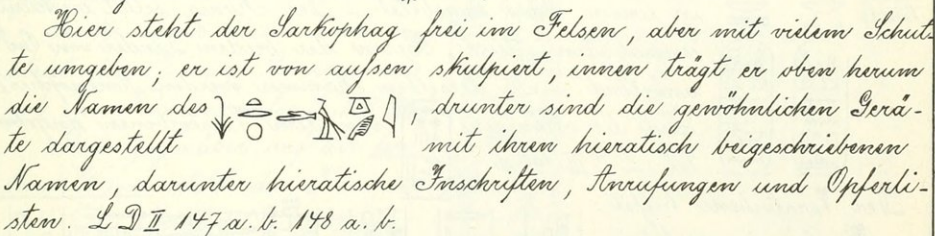 Hier steht der Sarkophag frei im Felsen, aber mit vielem Schut-
te umgeben; er ist von aufsen skulpiert, innen trägt er oben herum
die Namen des , drunter sind die gewöhnlichen Gerä-
te dargestellt mit ihren hieratisch beigeschriebenen
Namen, darunter hieratische Inschriften, Anrufungen und Opferli-
sten. L D II 147 a. b. 148 a. b.